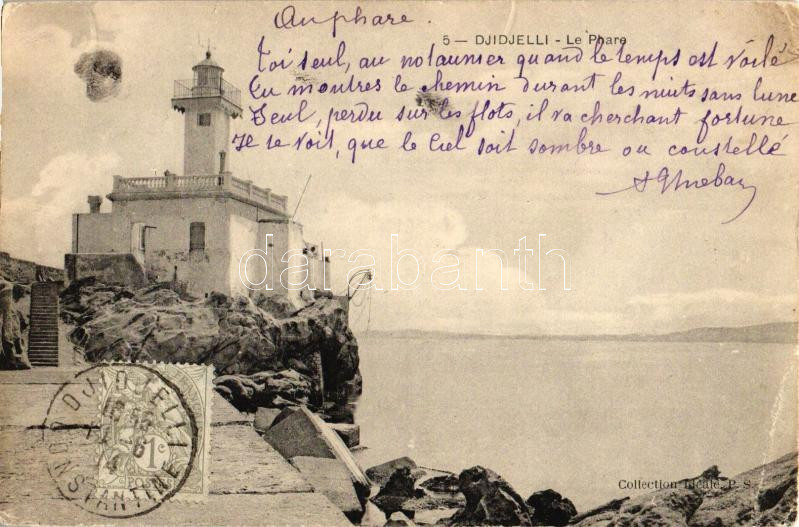 Au phare.
5 — DJIDJELLI - Le Phare
Toi seul, au nolaunier quand le temps est voilé
Tu montres le chemin durant les nuits sans lune
Seul, perdu sur les flots, il va cherchant fortune
Je te vois, que le Ciel soit sombre ou constellé
darabanth
DJIDJELLI
CONSTANTINE
1c
POSTES
Collection Idéale, P. S.